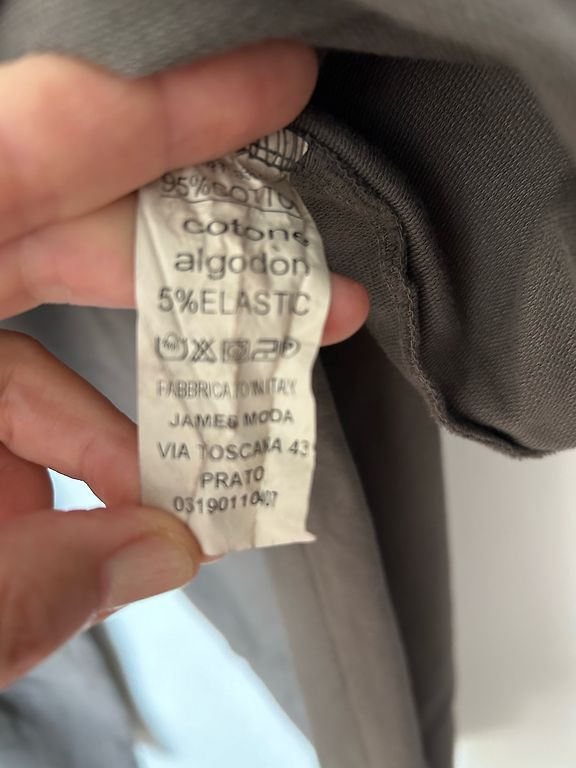 95%COTTO
cotone
algodón
5%ELASTC
FABBRICATO IN ITALY
JAMES MODA
VIA TOSCANA 43
PRATO